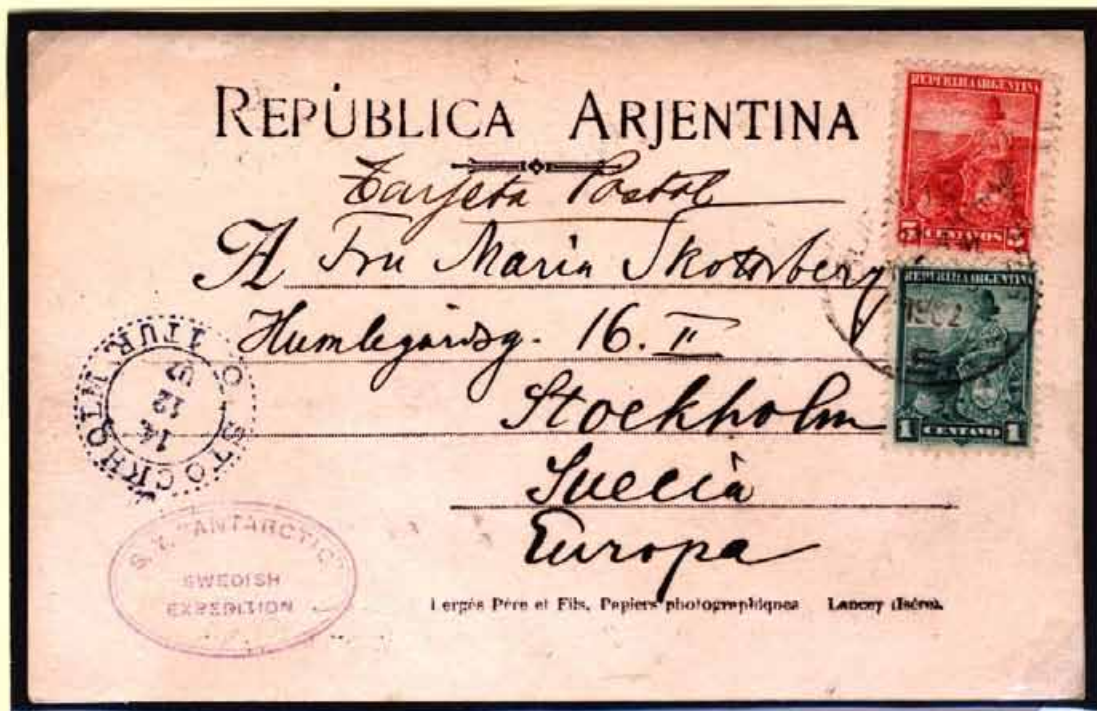 REPÚBLICA ARJENTINA
Tarjeta Postal
A Fru Maria Skottsberg
Humlegårdsg. 16. II
Stockholm
Suecia
Europa
REPUBLICA ARGENTINA
5 CENTAVOS 5
REPUBLICA ARGENTINA
1902
1 CENTAVO 1
STOCKHOLM
1 TUR.
14
12
02
S.Y. "ANTARCTIC"
SWEDISH
EXPEDITION
Bergès Père et Fils, Papiers photographiques Lancey (Isére).